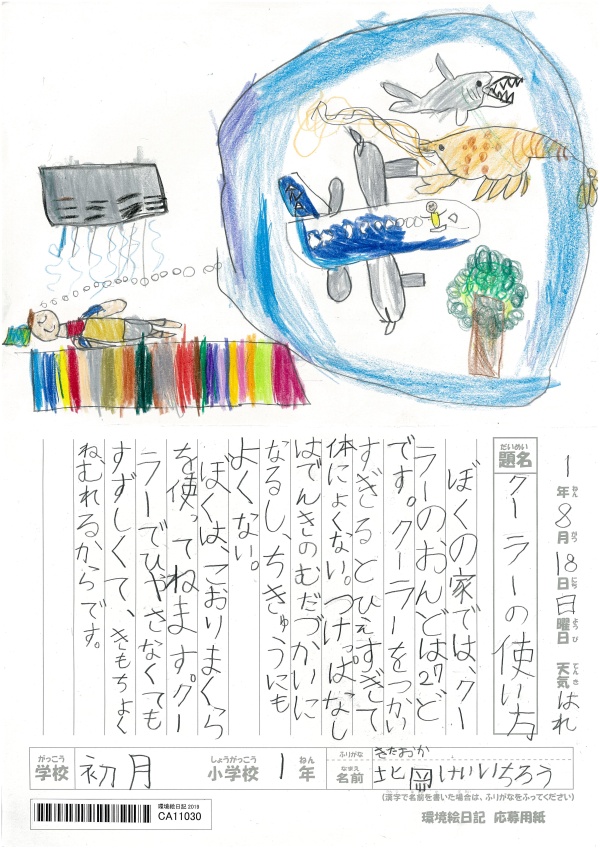 ANA
1年8月18日日曜日 天気はれ
ねん がつ にち ようび てんき
だいめい
題名
クーラーの使い方
ぼくの家では、クー
ラーのおんどは27ど
です。クーラーをつかい
すぎるとひえすぎて
体によくない。つけっぱなし
はでんきのむだづかいに
なるし、ちきゅうにも
よくない。
ぼくは、こおりまくら
を使ってねます。クー
ラーでひやさなくても
すずしくて、きもちよく
ねむれるからです。
がっこう
学校
初月
しょうがっこう ねん
小学校 1年
ふりがな
きたおか
なまえ
名前
北岡けいいちろう
(漢字で名前を書いた場合は、ふりがなをふってください)
環境絵日記 2019
CA11030
環境絵日記 応募用紙